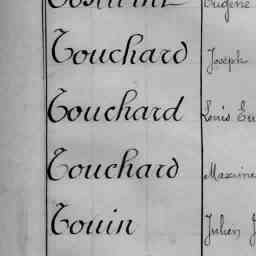 Eugène
Touchard Joseph
Touchard Louis
Touchard Maxime
Touin Julien